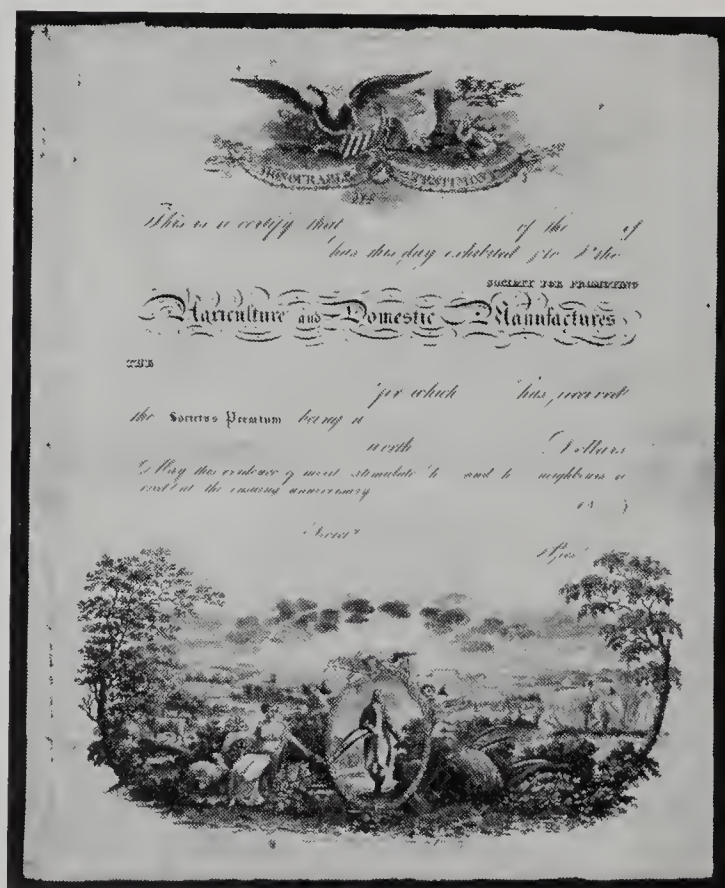 HONOURABLE TESTIMONY
This is to certify that of the of
has this day exhibited to the
SOCIETY FOR PROMOTING
Agriculture and Domestic Manufactures
THE
for which has received
the Societys Premium being a
worth Dollars
May this evidence of merit stimulate h and h neighbours to
excel at the ensuing anniversary